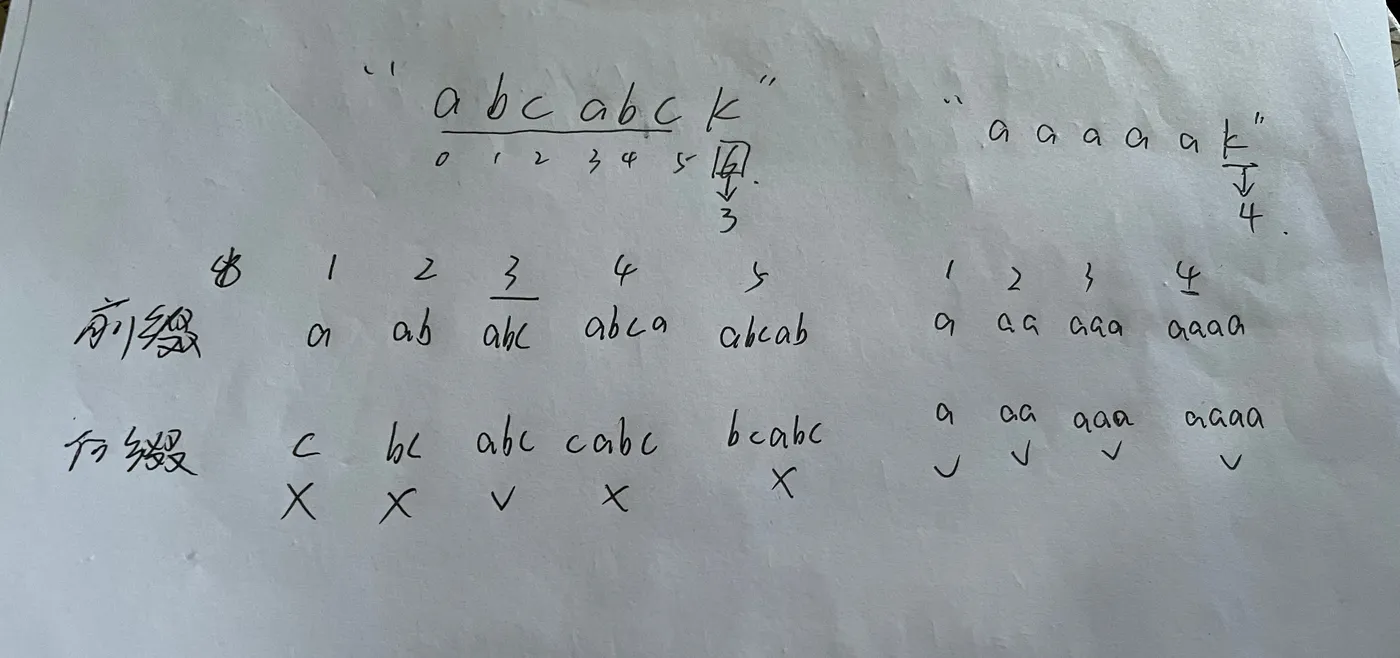 “abcabck” “aaaaak”
0 1 2 3 4 5 6.
3 4.
1 2 3 4 5 1 2 3 4
前缀 a ab abc abca abcab a aa aaa aaaa
后缀 c bc abc cabc bcabc a aa aaa aaaa
X X ✓ X X ✓ ✓ ✓ ✓